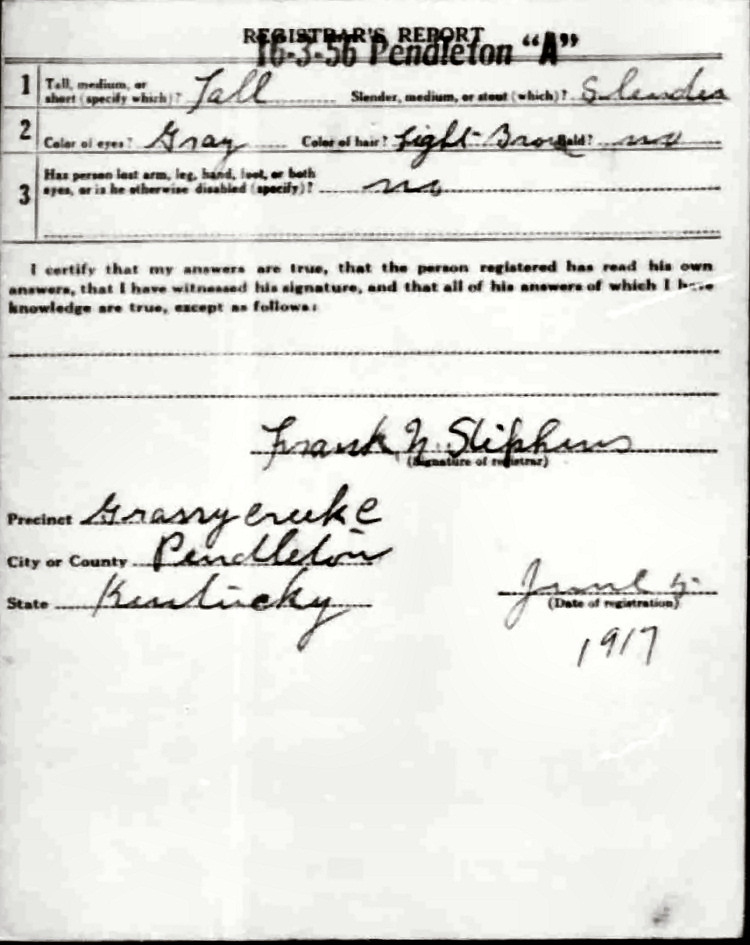 REGISTRAR'S REPORT
16-3-56 Pendleton “A”
1 Tall, medium, or short (specify which)? Tall Slender, medium, or stout (which)? Slender
2 Color of eyes? Gray Color of hair? Light Brown Bald? no
3 Has person lost arm, leg, hand, foot, or both
eyes, or is he otherwise disabled (specify)? no
I certify that my answers are true, that the person registered has read his own
answers, that I have witnessed his signature, and that all of his answers of which I have
knowledge are true, except as follows:
Frank N. Stiphens
(Signature of registrar)
Precinct Grassy creek C
City or County Pendleton
State Kentucky
June 5
(Date of registration)
1917